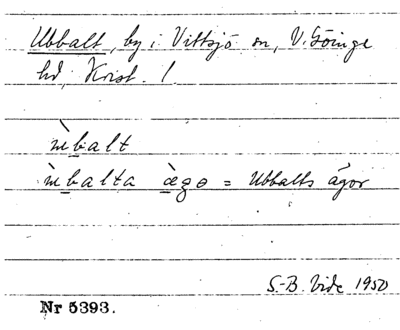 Ubbalt, by i Vittsjö sn, V. Göinge
hd, Krist. l
ùbalt
ùbalta ægo = Ubbalts ägor
S.-B. Vide 1950
Nr 5393.